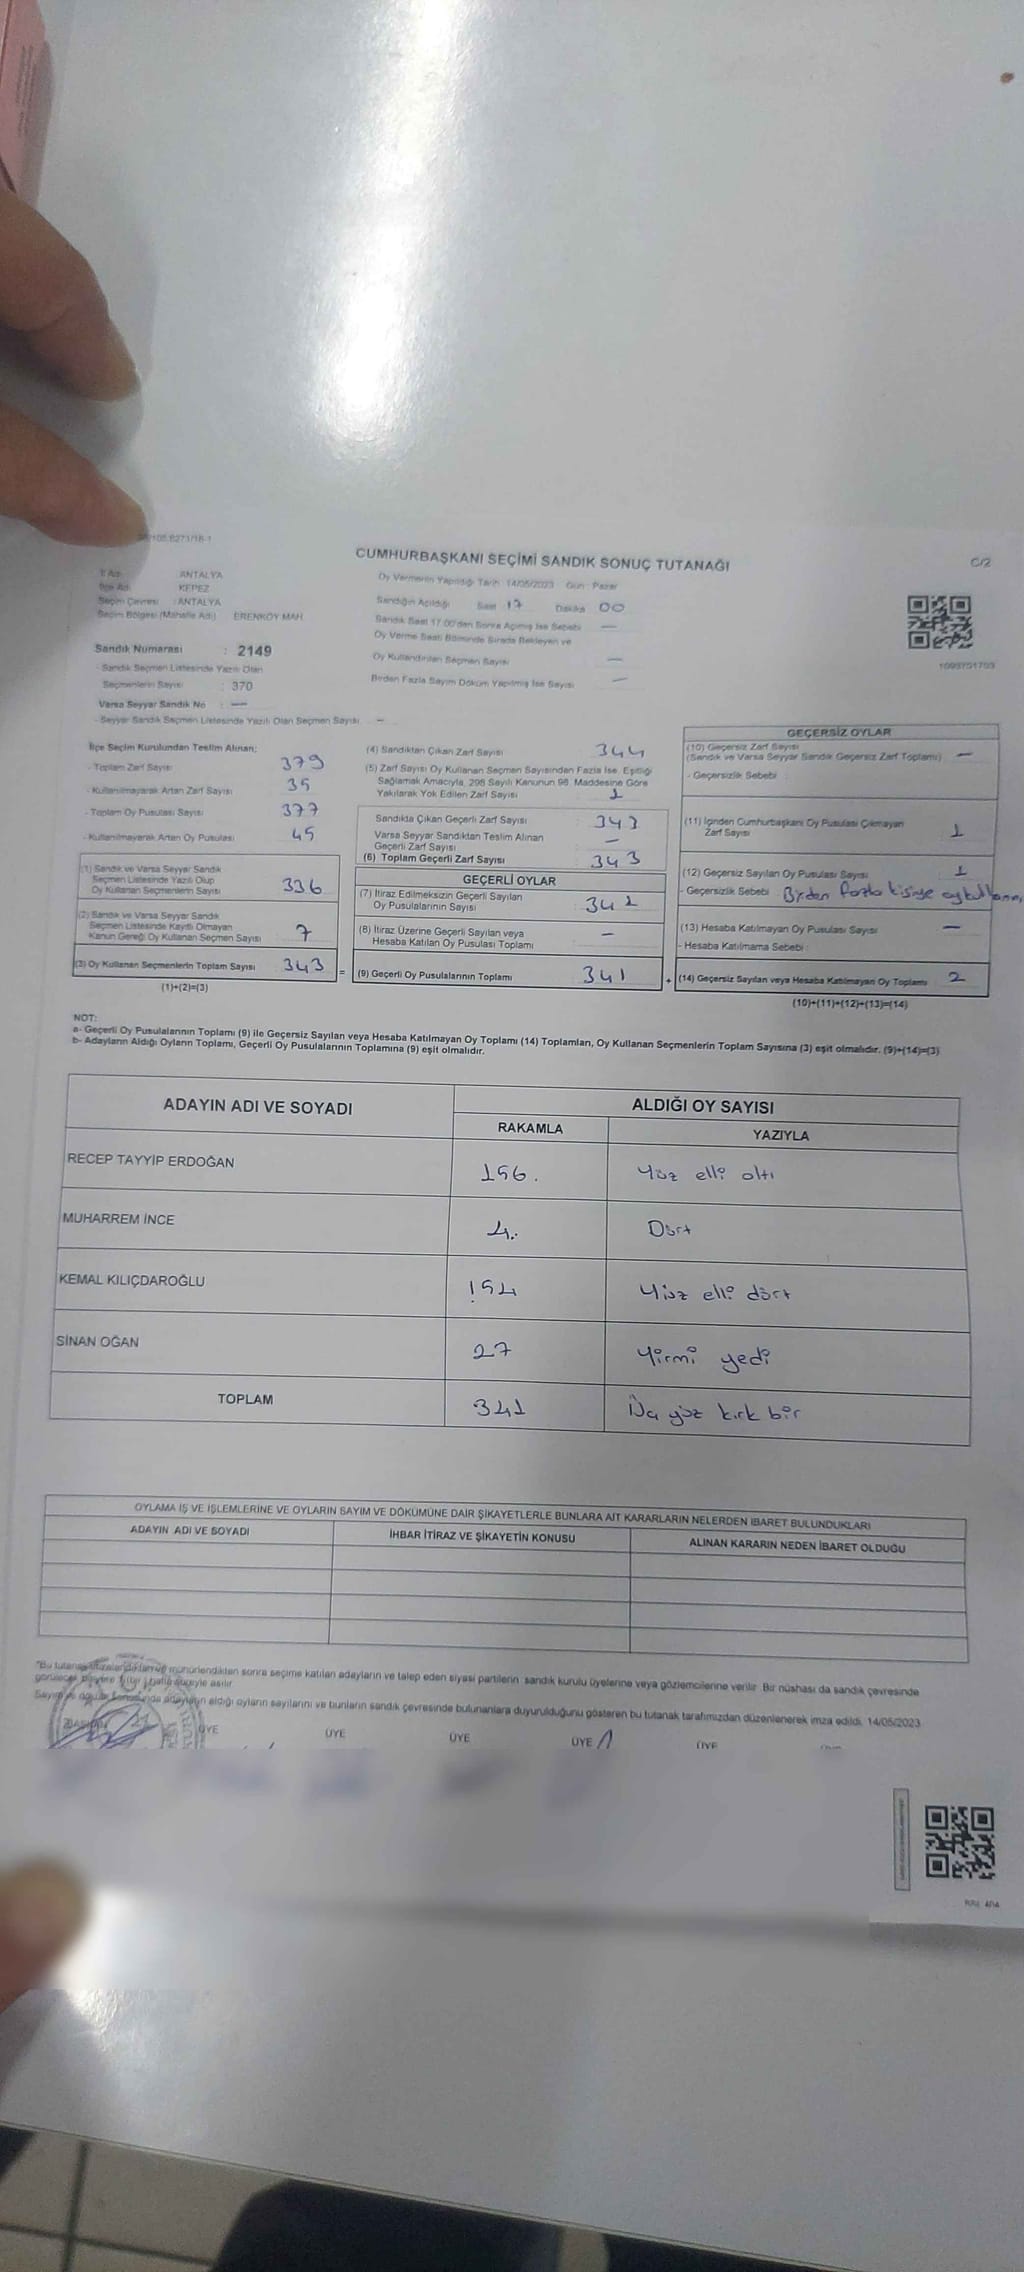 CUMHURBAŞKANI SEÇİMİ SANDIK SONUÇ TUTANAĞI
C/2
İl Adı : ANTALYA
İlçe Adı : KEPEZ
Seçim Çevresi : ANTALYA
Seçim Bölgesi (Mahalle Adı) ERENKÖY MAH.
Oy Vermenin Yapıldığı Tarih 14/05/2023 Gün : Pazar
Sandığın Açıldığı Saat 17 Dakika 00
Sandık Saat 17.00'den Sonra Açılmış İse Sebebi —
Oy Verme Saati Bitiminde Sırada Bekleyen ve
Oy Kullandırılan Seçmen Sayısı —
Birden Fazla Sayım Döküm Yapılmış İse Sayısı —
Sandık Numarası : 2149
- Sandık Seçmen Listesinde Yazılı Olan
Seçmenlerin Sayısı : 370
Varsa Seyyar Sandık No : —
- Seyyar Sandık Seçmen Listesinde Yazılı Olan Seçmen Sayısı —
İlçe Seçim Kurulundan Teslim Alınan;
- Toplam Zarf Sayısı 379
- Kullanılmayarak Artan Zarf Sayısı 35
- Toplam Oy Pusulası Sayısı 377
- Kullanılmayarak Artan Oy Pusulası 45
(1) Sandık ve Varsa Seyyar Sandık
Seçmen Listesinde Yazılı Olup
Oy Kullanan Seçmenlerin Sayısı 336
(2) Sandık ve Varsa Seyyar Sandık
Seçmen Listesinde Kayıtlı Olmayan
Kanun Gereği Oy Kullanan Seçmen Sayısı 7
(3) Oy Kullanan Seçmenlerin Toplam Sayısı 343
(1)+(2)=(3)
(4) Sandıktan Çıkan Zarf Sayısı 344
(5) Zarf Sayısı Oy Kullanan Seçmen Sayısından Fazla İse, Eşitliği
Sağlamak Amacıyla, 298 Sayılı Kanunun 98. Maddesine Göre
Yakılarak Yok Edilen Zarf Sayısı 1
Sandıkta Çıkan Geçerli Zarf Sayısı : 343
Varsa Seyyar Sandıktan Teslim Alınan
Geçerli Zarf Sayısı —
(6) Toplam Geçerli Zarf Sayısı 343
GEÇERLİ OYLAR
(7) İtiraz Edilmeksizin Geçerli Sayılan
Oy Pusulalarının Sayısı : 341
(8) İtiraz Üzerine Geçerli Sayılan veya
Hesaba Katılan Oy Pusulası Toplamı : —
= (9) Geçerli Oy Pusulalarının Toplamı 341
GEÇERSİZ OYLAR
(10) Geçersiz Zarf Sayısı
(Sandık ve Varsa Seyyar Sandık Geçersiz Zarf Toplamı) —
- Geçersizlik Sebebi :
(11) İçinden Cumhurbaşkanı Oy Pusulası Çıkmayan
Zarf Sayısı 1
(12) Geçersiz Sayılan Oy Pusulası Sayısı 1
- Geçersizlik Sebebi : Birden fazla kişiye
(13) Hesaba Katılmayan Oy Pusulası Sayısı —
- Hesaba Katılmama Sebebi :
+ (14) Geçersiz Sayılan veya Hesaba Katılmayan Oy Toplamı 2
(10)+(11)+(12)+(13)=(14)
NOT:
a- Geçerli Oy Pusulalarının Toplamı (9) ile Geçersiz Sayılan veya Hesaba Katılmayan Oy Toplamı (14) Toplamları, Oy Kullanan Seçmenlerin Toplam Sayısına (3) eşit olmalıdır. (9)+(14)=(3)
b- Adayların Aldığı Oyların Toplamı, Geçerli Oy Pusulalarının Toplamına (9) eşit olmalıdır.
ADAYIN ADI VE SOYADI
ALDIĞI OY SAYISI
RAKAMLA YAZIYLA
RECEP TAYYİP ERDOĞAN 156. Yüz elli altı
MUHARREM İNCE 4. Dört
KEMAL KILIÇDAROĞLU 154 Yüz elli dört
SİNAN OĞAN 27 Yirmi yedi
TOPLAM 341 Üç yüz kırk bir
OYLAMA İŞ VE İŞLEMLERİNE VE OYLARIN SAYIM VE DÖKÜMÜNE DAİR ŞİKAYETLERLE BUNLARA AİT KARARLARIN NELERDEN İBARET BULUNDUKLARI
ADAYIN ADI VE SOYADI
İHBAR İTİRAZ VE ŞİKAYETİN KONUSU
ALINAN KARARIN NEDEN İBARET OLDUĞU
mühürlendikten sonra seçime katılan adayların ve talep eden siyasi partilerin sandık kurulu üyelerine veya gözlemcilerine verilir. Bir nüshası da sandık çevresinde
asılır.
adayların aldığı oyların sayılarını ve bunların sandık çevresinde bulunanlara duyurulduğunu gösteren bu tutanak tarafımızdan düzenlenerek imza edildi. 14/05/2023
BAŞKAN ÜYE ÜYE ÜYE ÜYE ÜYE